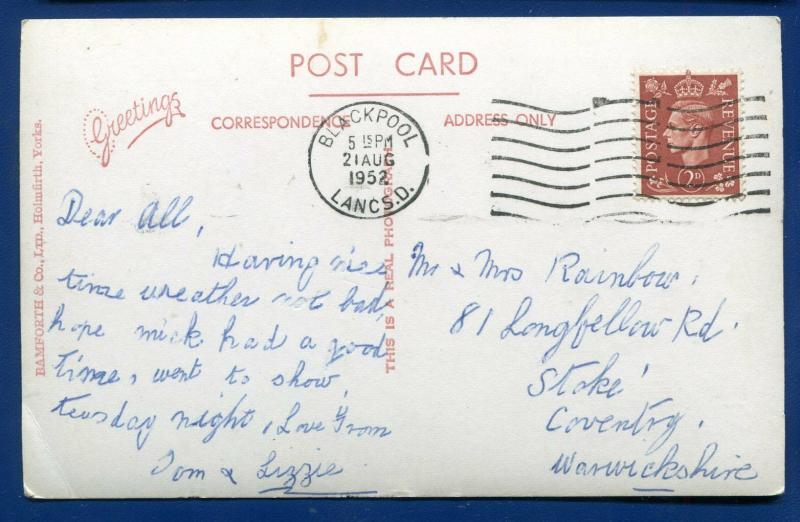 POST CARD
Greetings
CORRESPONDENCE
ADDRESS ONLY
BLACKPOOL
5 15 PM
21 AUG
1952
LANCS.D.
POSTAGE
REVENUE
2D
BAMFORTH & Co., LTD., Holmfirth, Yorks.
THIS IS A REAL PHOTOGRAPH
Dear All,
Having nice
time weather not bad,
hope mick had a good
time, went to show
teusday night, Love from
Tom & Lizzie
Mr & Mrs Rainbow.
81 Longfellow Rd.
Stoke
Coventry.
Warwickshire